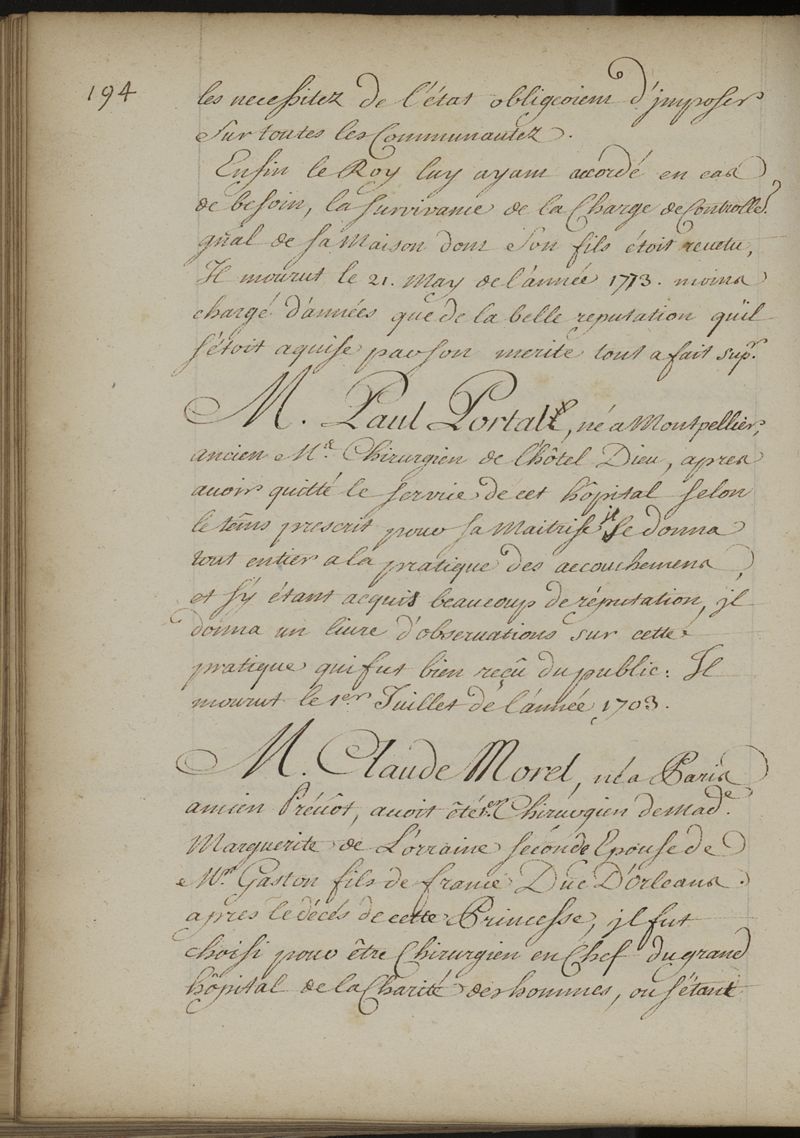 194
les necessitez de l'état obligeoient d'jmposer
sur toutes les Communautez.
Enfin le Roy luy ayant accordé en cas
de besoin, la survivance de la Charge de Controlle.r
gñal de sa Maison dont son fils étoit revetu,
Il mourut le 21. May de l'année 1713. moins
chargé d'années que de la belle reputation qu'il
s'étoit aquise par son merite tout a fait sup.r
M. Paul Portal, né a Montpellier,
ancien M.e Chirurgien de l'hôtel Dieu, apres
avoir quitté le service de cet hôpital selon
le tems prescrit pour sa Maitrise il se donna
tout entier a la pratique des accouchemens,
et s'y étant acquis beaucoup de réputation, jl
donna un livre d'observations sur cette
pratique qui fut bien reçû du public: Il
mourut le 1.er Juillet de l'année 1703.
M. Claude Morel, né a Paris
ancien Prévôt, avoit été 1.er Chirurgien de Mad.e
Marguerite de Lorraine seconde Epouse de
M.r Gaston fils de france Duc D'Orleans.
apres le décés de cette Princesse, jl fut
choisi pour être Chirurgien en Chef du grand
hôpital de la Charité des hommes, ou s'étant